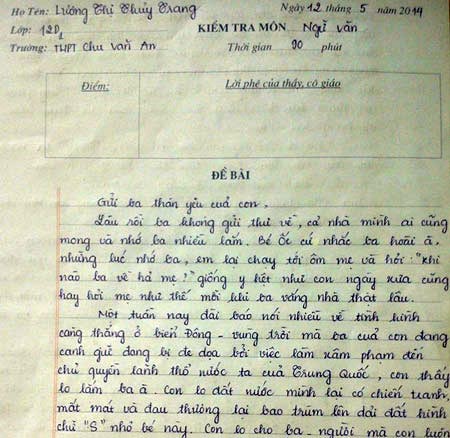 Họ Tên: Lương Thị Thuỳ Trang Ngày 12 tháng 5 năm 2014
Lớp: 12D1 KIỂM TRA MÔN Ngữ văn
Trường: THPT Chu Văn An Thời gian 90 phút
Điểm: Lời phê của thầy, cô giáo
ĐỀ BÀI
Gửi ba thân yêu của con,
Lâu rồi ba không gửi thư về, cả nhà mình ai cũng
mong và nhớ ba nhiều lắm. Bé Ốc cứ nhắc ba hoài à,
những lúc nhớ ba, em lại chạy tới ôm mẹ và hỏi: "khi
nào ba về hả mẹ!" giống y hệt như con ngày xưa cũng
hay hỏi mẹ như thế mỗi khi ba vắng nhà thật lâu.
Một tuần nay đài báo nói nhiều về tình hình
căng thẳng ở biển Đông - vùng trời mà ba của con đang
canh giữ đang bị đe dọa bởi việc làm xâm phạm đến
chủ quyền lãnh thổ nước ta của Trung Quốc, con thấy
lo lắm ba ạ. Con lo đất nước mình lại có chiến tranh,
mất mát và đau thương lại bao trùm lên dải đất hình
chữ "S" nhỏ bé này. Con lo cho ba - người mà con luôn